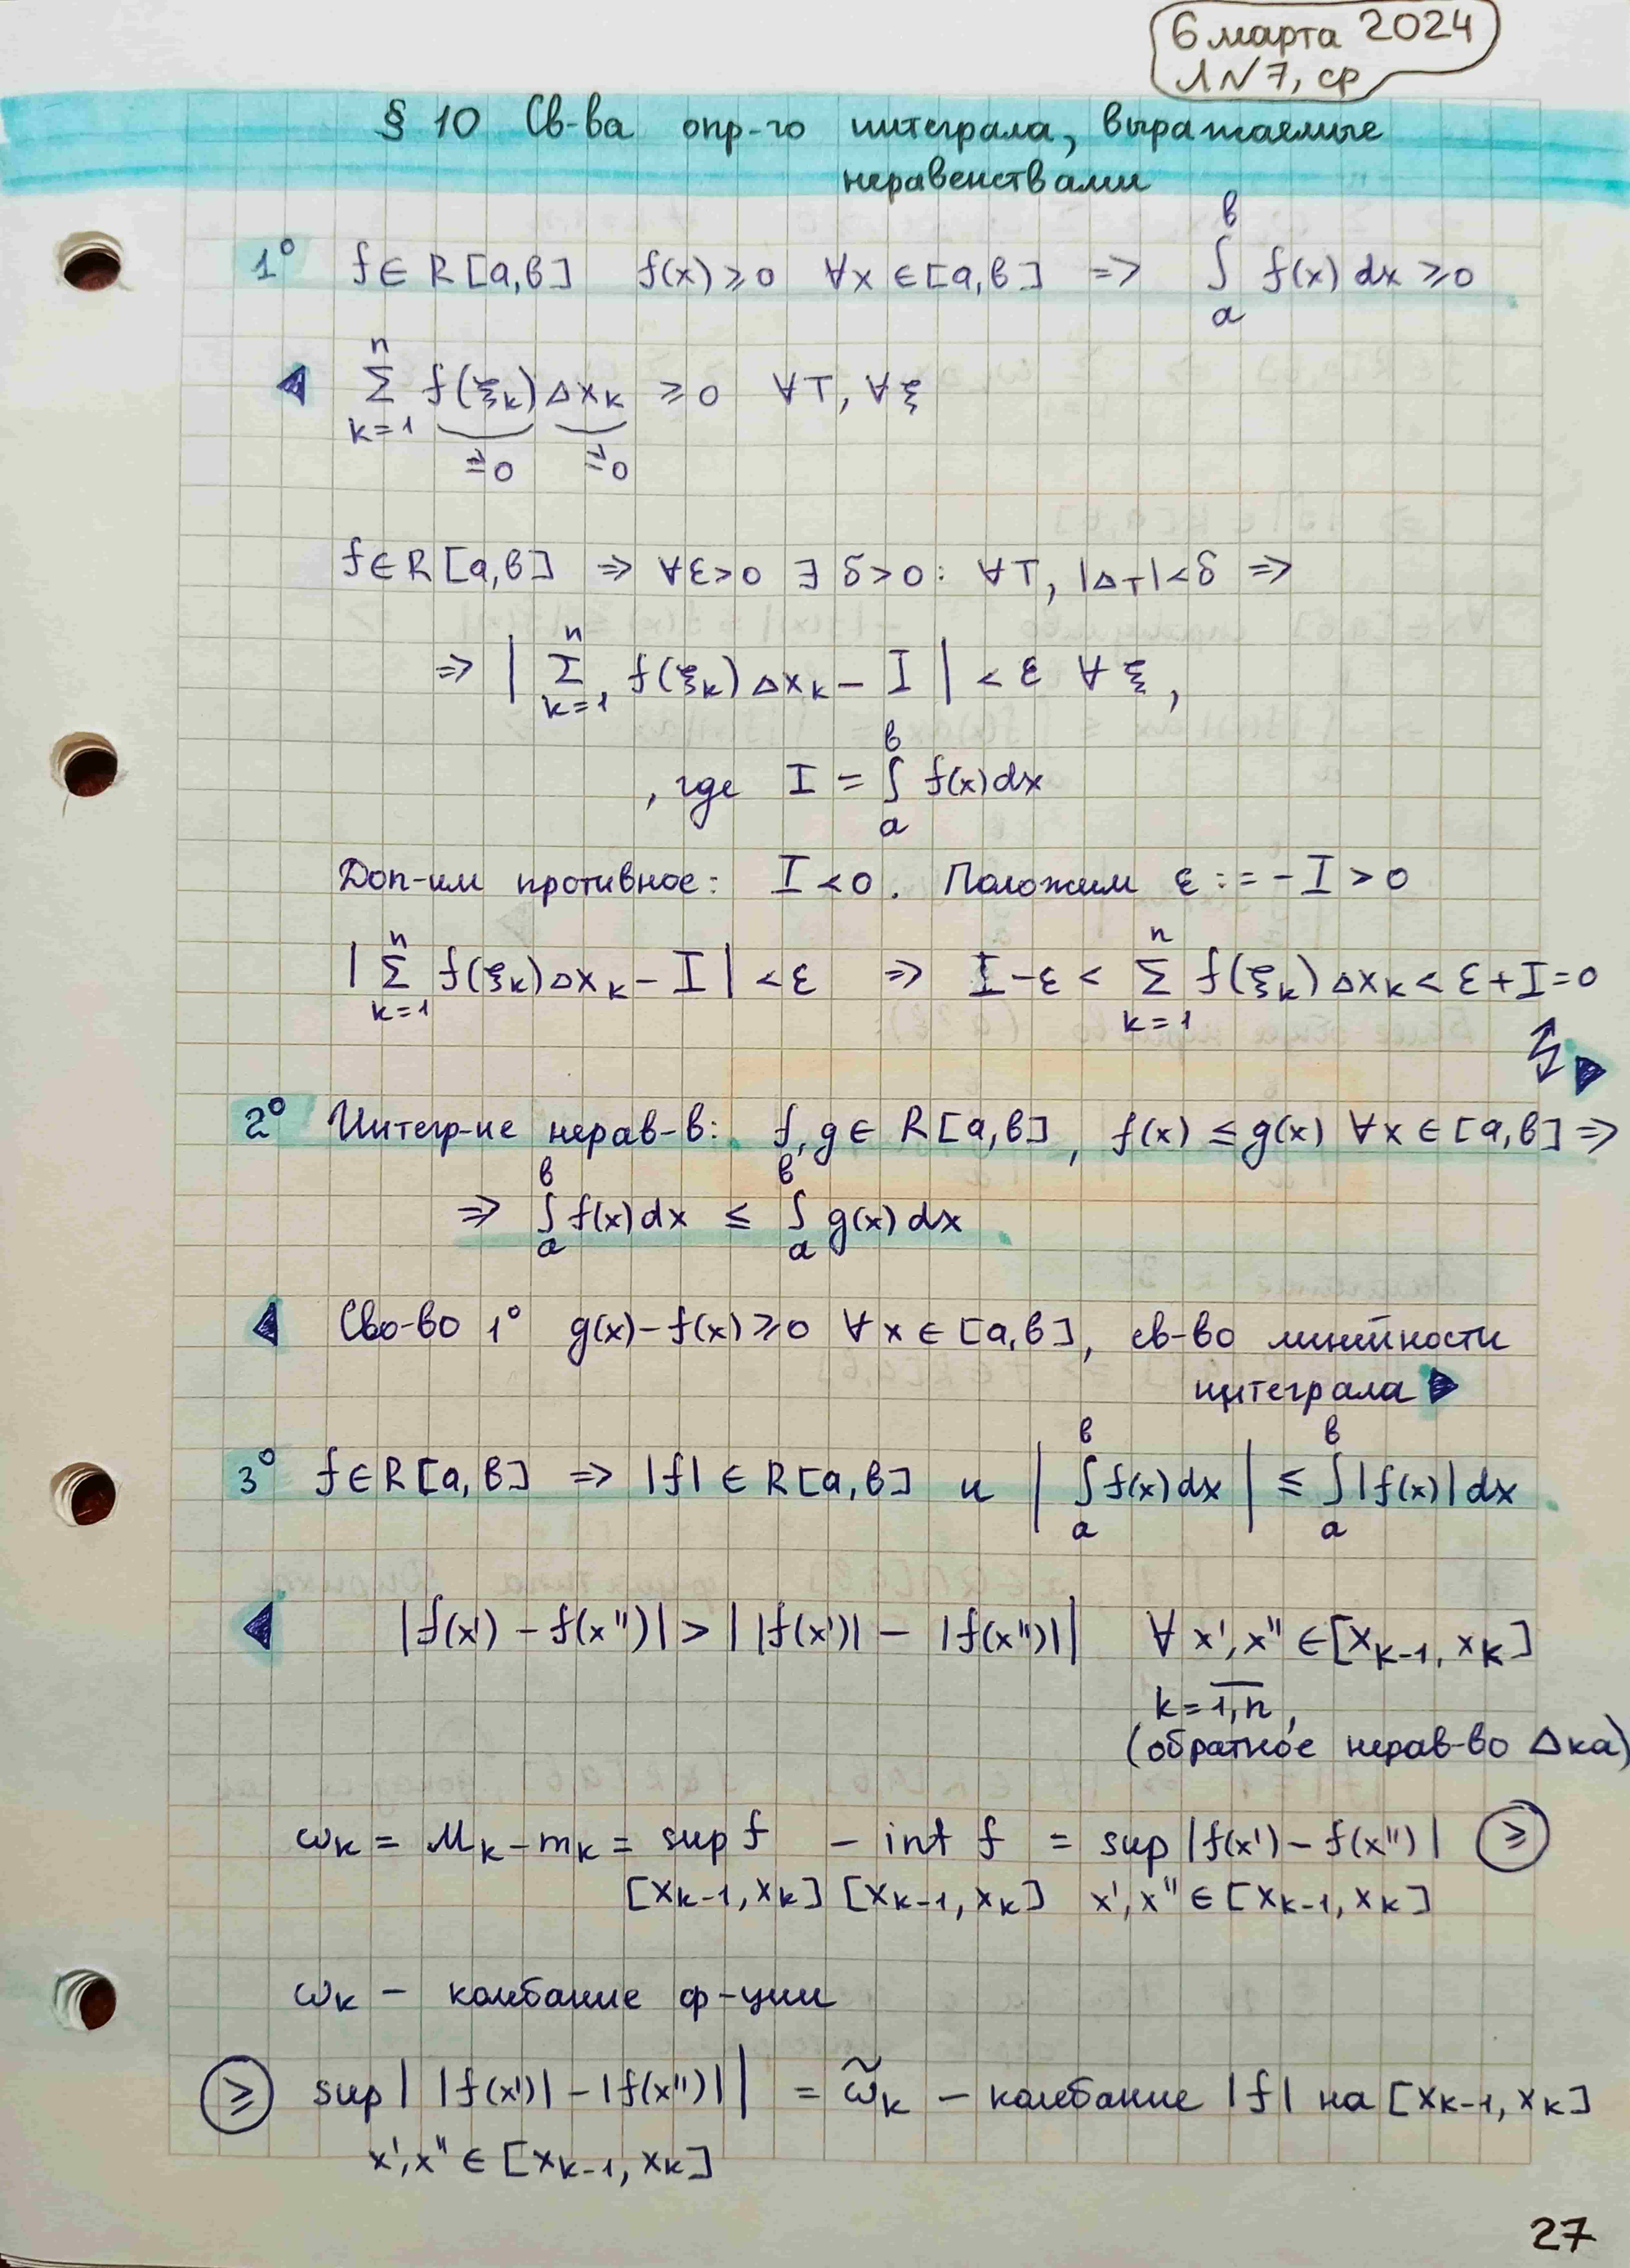 6 марта 2024
Л N 7, ср
§ 10 Св-ва опр-го интеграла, выражаемые
неравенствами
1° f ∈ R[a,b] f(x) ⩾ 0 ∀x ∈ [a,b] => ∫_a^b f(x) dx ⩾ 0
◀ ∑_{k=1}^n f(ξ_k) Δx_k ⩾ 0 ∀T, ∀ξ
⩾0 ⩾0
f ∈ R[a,b] => ∀ε>0 ∃ δ>0: ∀T, |Δ_T|<δ =>
=> | ∑_{k=1}^n f(ξ_k) Δx_k − I | < ε ∀ ξ,
, где I = ∫_a^b f(x)dx
Доп-им противное: I < 0. Положим ε := −I > 0
| ∑_{k=1}^n f(ξ_k)Δx_k − I | < ε => I−ε < ∑_{k=1}^n f(ξ_k) Δx_k < ε+I=0
▶
2° Интегр-ие нерав-в: f, g ∈ R[a,b], f(x) ≤ g(x) ∀x ∈ [a,b] =>
=> ∫_a^b f(x)dx ≤ ∫_a^b g(x)dx
◀ Сво-во 1° g(x)−f(x) ⩾ 0 ∀x ∈ [a,b], св-во линейности
интеграла ▶
3° f ∈ R[a,b] => |f| ∈ R[a,b] и | ∫_a^b f(x)dx | ≤ ∫_a^b |f(x)|dx
◀ |f(x') − f(x'')| > | |f(x')| − |f(x'')| | ∀ x', x'' ∈ [x_{k-1}, x_k]
k = \overline{1,n},
(обратное нерав-во Δка)
ω_k = M_k − m_k = sup f − inf f = sup |f(x') − f(x'')| ⩾
[x_{k-1}, x_k] [x_{k-1}, x_k] x', x'' ∈ [x_{k-1}, x_k]
ω_k − колебание ф-ции
⩾ sup | |f(x')| − |f(x'')| | = \tilde{ω}_k − колебание |f| на [x_{k-1}, x_k]
x', x'' ∈ [x_{k-1}, x_k]
27